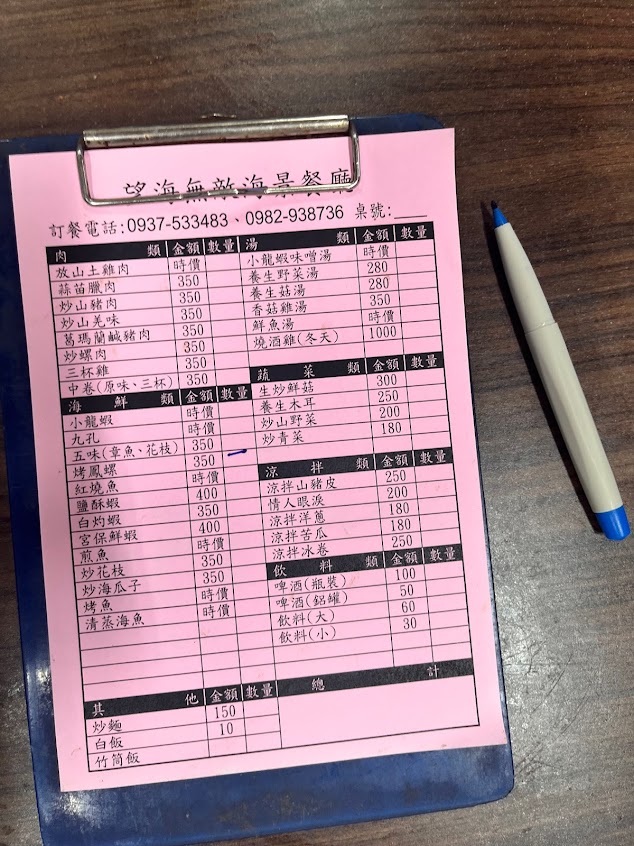 望海無敵海景餐廳
訂餐電話:0937-533483、0982-938736 桌號:____
肉 類 金額 數量
放山土雞肉 時價
蒜苗臘肉 350
炒山豬肉 350
炒山羌味 350
葛瑪蘭鹹豬肉 350
炒螺肉 350
三杯雞 350
中卷(原味、三杯) 350
海 鮮 類 金額 數量
小龍蝦 時價
九孔 時價
五味(章魚、花枝) 350
烤鳳螺 350
紅燒魚 時價
鹽酥蝦 400
白灼蝦 350
宮保鮮蝦 400
煎魚 時價
炒花枝 350
炒海瓜子 350
烤魚 時價
清蒸海魚 時價
其 他 金額 數量
炒麵 150
白飯 10
竹筒飯
湯 類 金額 數量
小龍蝦味噌湯 時價
養生野菜湯 280
養生菇湯 280
香菇雞湯 350
鮮魚湯 時價
燒酒雞(冬天) 1000
蔬 菜 類 金額 數量
生炒鮮菇 300
養生木耳 250
炒山野菜 200
炒青菜 180
涼 拌 類 金額 數量
涼拌山豬皮 250
情人眼淚 200
涼拌洋蔥 180
涼拌苦瓜 180
涼拌冰卷 250
飲 料 類 金額 數量
啤酒(瓶裝) 100
啤酒(鋁罐) 50
飲料(大) 60
飲料(小) 30
總 計